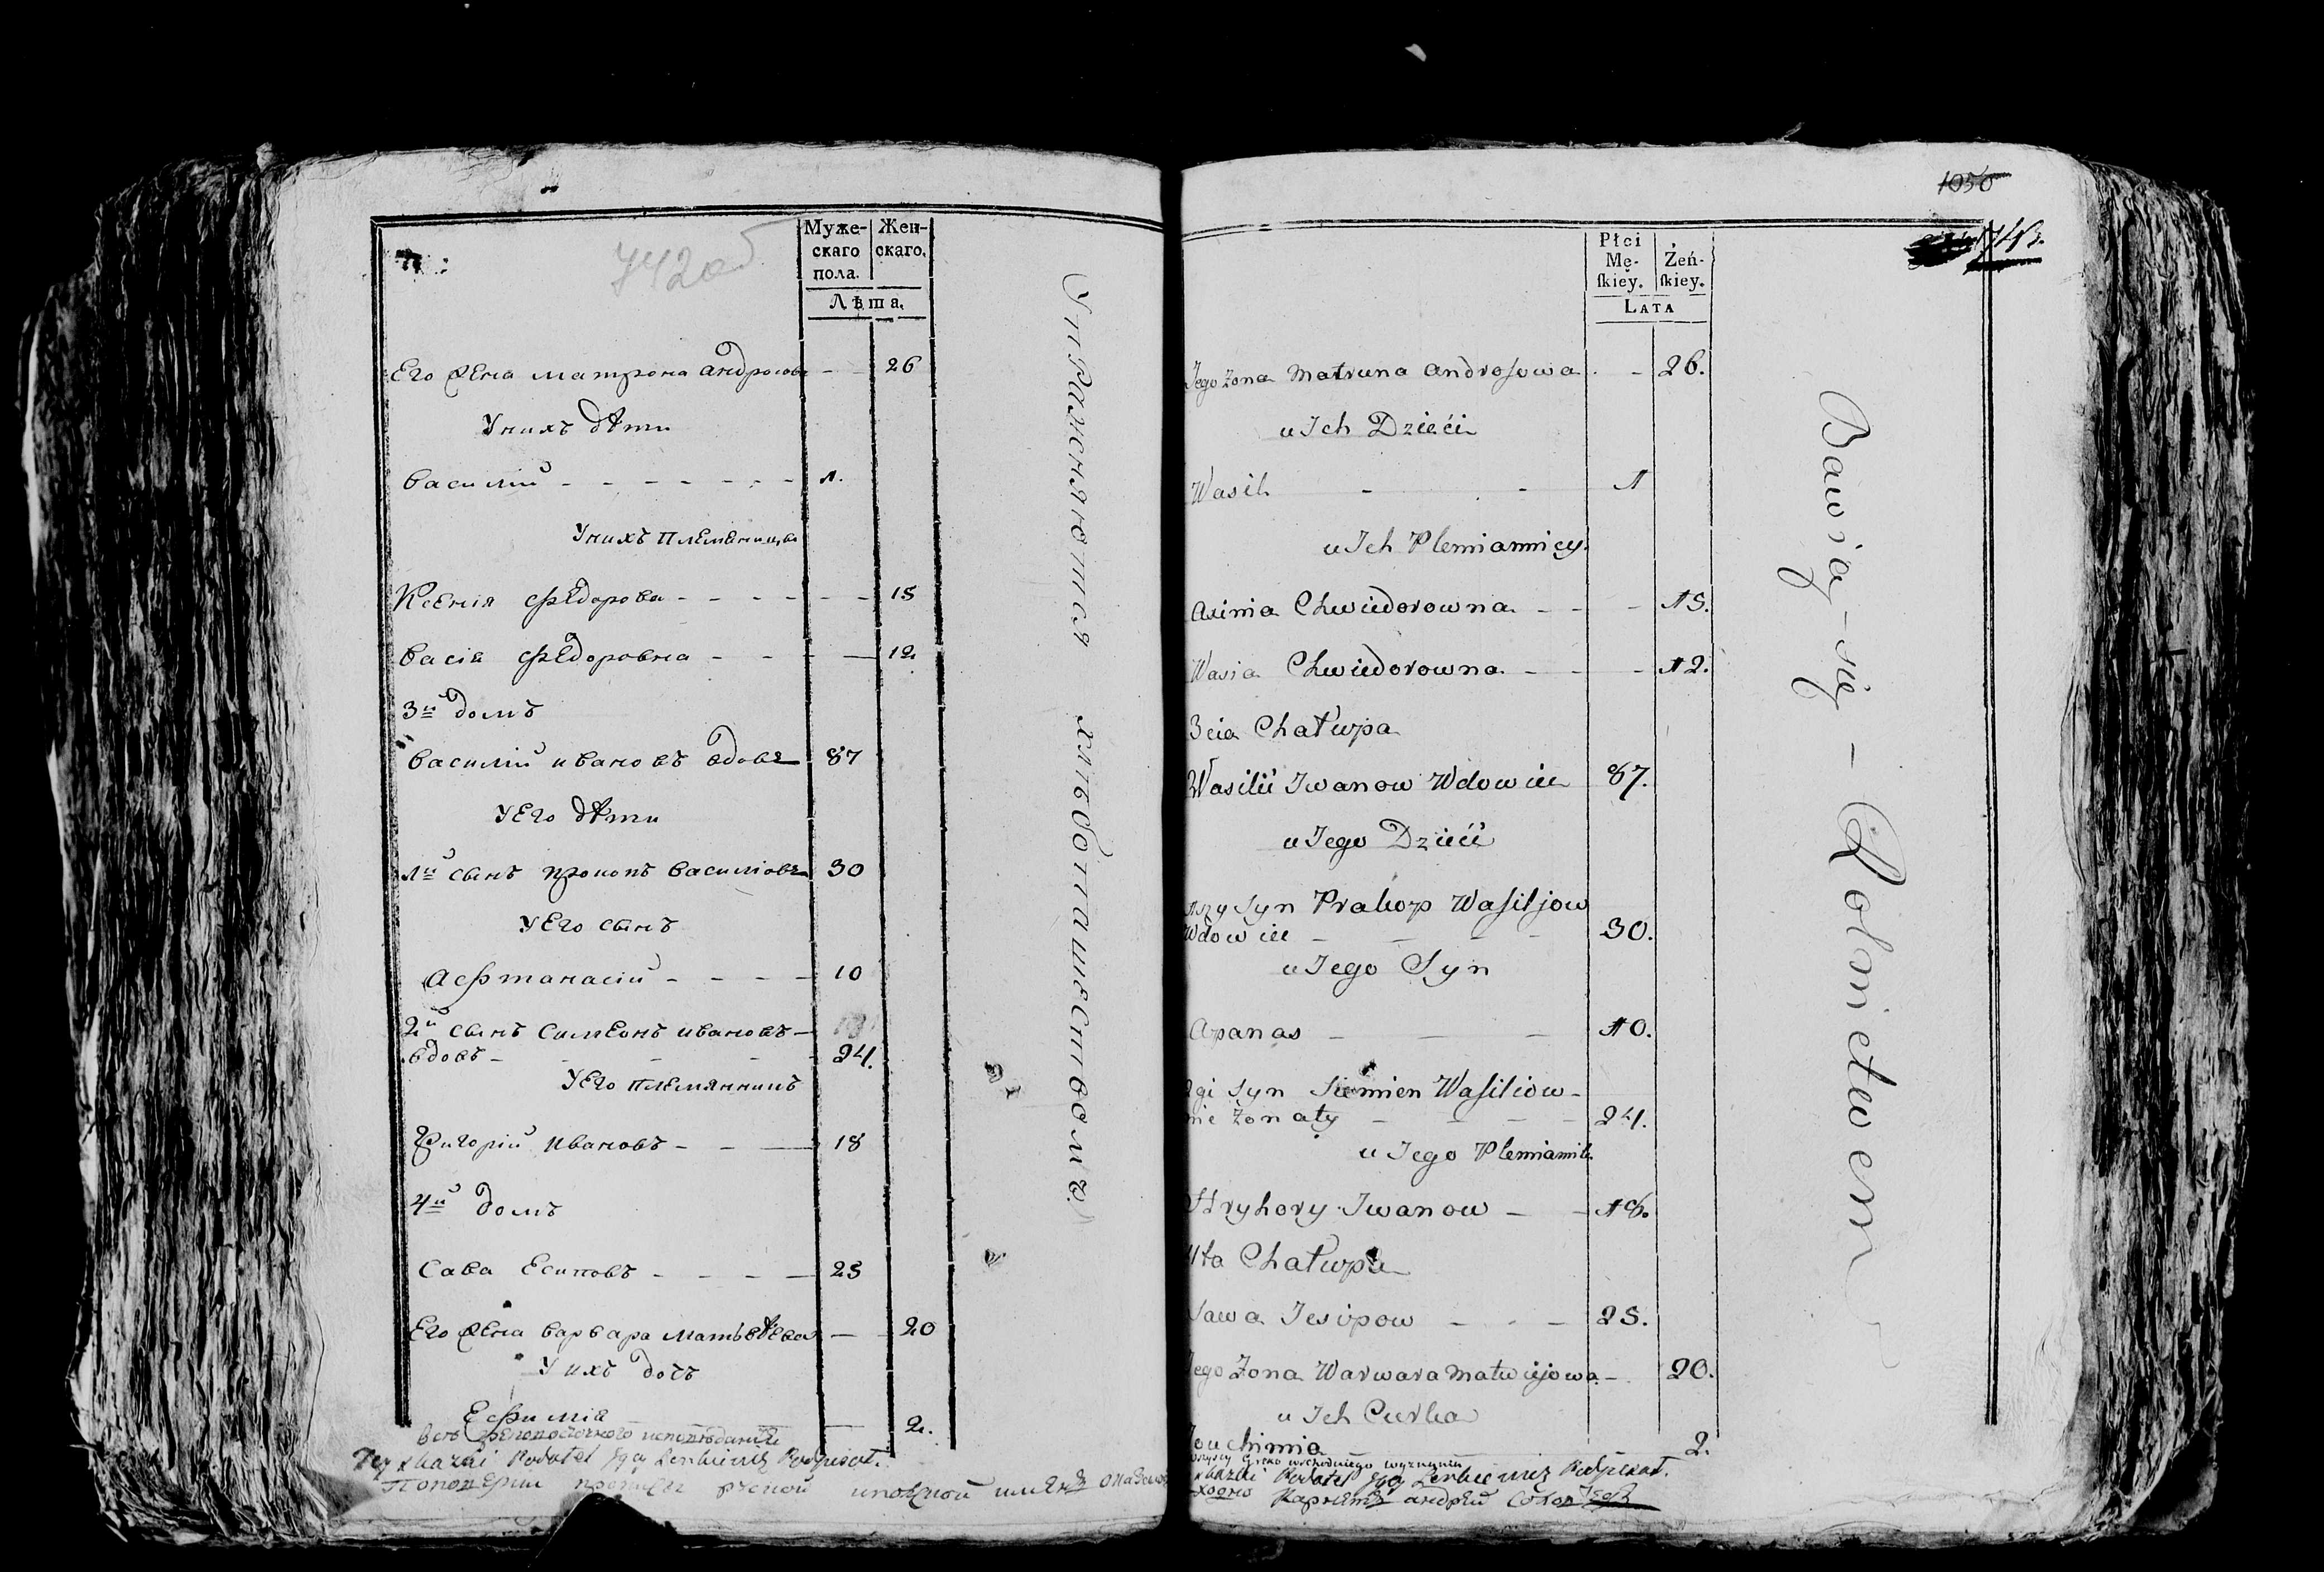 742 об
Муже-
скаго
пола.
Жен-
скаго.
Лѣта.
Его жена матрона андросова - - 26
Унихъ дѣти
Василій - - - - - - - 1.
Унихъ племеницы
Ксенія Федорова - - - - - - 15
Васія Федоровна - - - - 12
3й домъ
Василій ивановъ вдовъ 87
Уего дѣти
1й сынъ прокопъ василіовъ 30
Уего сынъ
Афтанасій - - - - 10
2й сынъ симеонъ ивановъ -
вдовъ - - - - 24.
Уего племянникъ
Григорій Ивановъ - - - 18
4й домъ
Сава Есиповъ - - - - 25
Его жена варвара матьвѣева - - 20
У ихъ доч
Ефимія - 2.
Podatel Podpisał.
Упражняются хлѣбопашествомъ
1050
743.
Płci
Mę-
ſkiey.
Żeń-
ſkiey.
LATA
Jego żona Matruna Androsowa - - 26.
u Ich Dzieci
Wasil - - 1
u Ich Plemiannicy.
Axinia Chwiedorowna - - - 15.
Wasia Chwiedorowna - - - 12.
3cia Chałupa
Wasilii Iwanow Wdowiec 87.
u Jego Dzieci
1szy syn Prakop Wasiljow
Wdowiec - - - - 30.
u Jego Syn
Apanas - - - 10.
2gi syn Siemien Wasiliow -
nie żonaty - - - - 24.
u Jego Plemiannik
Hryhory Iwanow - - 18.
4ta Chałupa
Sawa Jesipow - - - 25.
Jego Żona Warwara Matwiejowa - 20.
u Ich Curka
Jouchimia 2.
wszyscy Greko wschodniego wyznania
skazki Podatel Podpisał.
андрей
Bawią - się - Rolnictwem